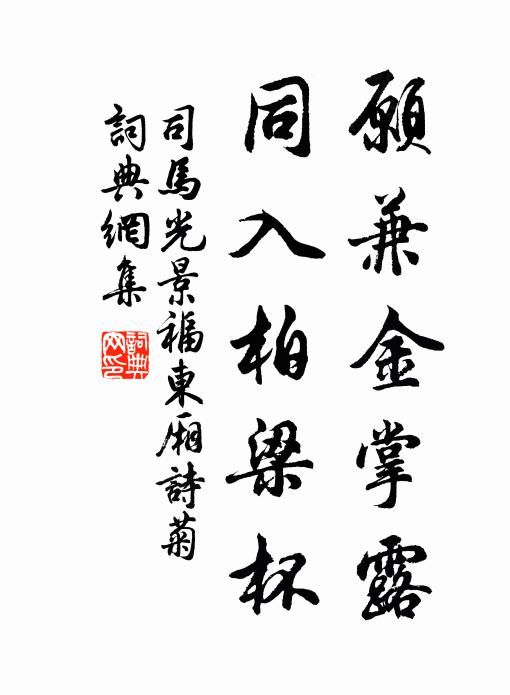 願兼金掌露
同入柏梁杯
司馬光景福東廂詩菊
詞典網集
詞典
網印